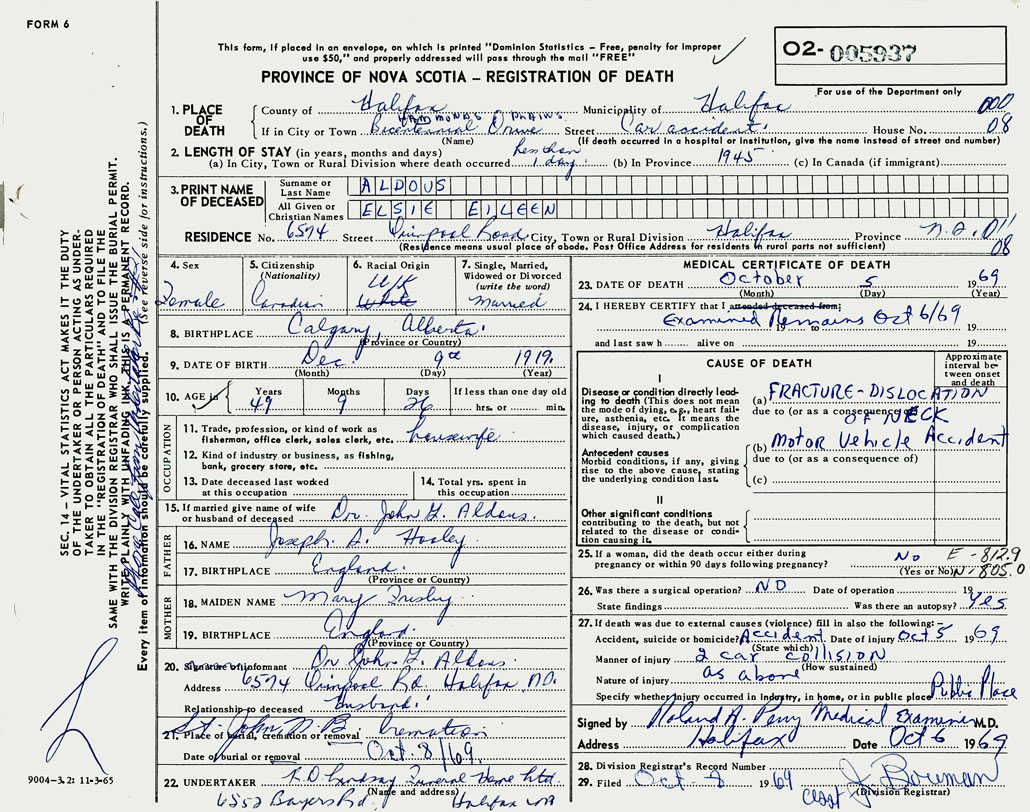 FORM 6
This form, if placed in an envelope, on which is printed "Dominion Statistics – Free, penalty for improper
use $50," and properly addressed will pass through the mail "FREE"
O2- 005937
For use of the Department only
PROVINCE OF NOVA SCOTIA – REGISTRATION OF DEATH
1. PLACE OF DEATH
County of Halifax Municipality of Halifax 000
HAMMONDS PLAINS
If in City or Town Bicentennial Drive Street Car accident. House No. 08
(Name) (If death occurred in a hospital or institution, give the name instead of street and number)
2. LENGTH OF STAY (in years, months and days) less than
(a) In City, Town or Rural Division where death occurred 1 day. (b) In Province 1945 (c) In Canada (if immigrant)
3. PRINT NAME OF DECEASED
Surname or Last Name ALDOUS
All Given or Christian Names ELSIE EILEEN
RESIDENCE No. 6574 Street Quinpool Road City, Town or Rural Division Halifax Province N.S. 011
(Residence means usual place of abode. Post Office Address for residents in rural parts not sufficient) 08
4. Sex
Female
5. Citizenship
(Nationality)
Canadian
6. Racial Origin
U/K
White
7. Single, Married,
Widowed or Divorced
(write the word)
Married
8. BIRTHPLACE Calgary, Alberta.
(Province or Country)
9. DATE OF BIRTH Dec. 9th 1919.
(Month) (Day) (Year)
10. AGE in
Years Months Days If less than one day old
49 9 26 hrs. or min.
OCCUPATION
11. Trade, profession, or kind of work as
fisherman, office clerk, sales clerk, etc. housewife
12. Kind of industry or business, as fishing,
bank, grocery store, etc.
13. Date deceased last worked
at this occupation
14. Total yrs. spent in
this occupation
15. If married give name of wife
or husband of deceased Dr. John G. Aldous.
FATHER
16. NAME Joseph A. Hooley.
17. BIRTHPLACE England.
(Province or Country)
MOTHER
18. MAIDEN NAME Mary
19. BIRTHPLACE England.
(Province or Country)
20. Signature of informant Dr John G. Aldous.
Address 6574 Quinpool Rd. Halifax N.S.
Relationship to deceased Husband.
St. John N.B. Cremation
21. Place of burial, cremation or removal
Date of burial or removal Oct. 8/69.
22. UNDERTAKER Lindsay Funeral Home Ltd.
(Name and address)
6552 Bayers Rd. Halifax NS
MEDICAL CERTIFICATE OF DEATH
23. DATE OF DEATH October 5 1969
(Month) (Day) (Year)
24. I HEREBY CERTIFY that I attended deceased from:
Examined Remains Oct 6/69
19 to 19
and last saw h alive on 19
CAUSE OF DEATH
Approximate
interval be-
tween onset
and death
I
Disease or condition directly lead-
ing to death (This does not mean
the mode of dying, e.g., heart fail-
ure, asthenia, etc. It means the
disease, injury, or complication
which caused death.)
(a) FRACTURE-DISLOCATION
due to (or as a consequence of)
OF NECK
Antecedent causes
Morbid conditions, if any, giving
rise to the above cause, stating
the underlying condition last.
(b) Motor Vehicle Accident
due to (or as a consequence of)
(c)
II
Other significant conditions
contributing to the death, but not
related to the disease or condi-
tion causing it.
25. If a woman, did the death occur either during
pregnancy or within 90 days following pregnancy? No
(Yes or No)
E - 812.9
N - 805.0
26. Was there a surgical operation? NO Date of operation 19
State findings Was there an autopsy? Yes
27. If death was due to external causes (violence) fill in also the following:–
Accident, suicide or homicide? Accident Date of injury Oct 5 1969
(State which)
Manner of injury 2 car collision
(How sustained)
Nature of injury as above
Specify whether injury occurred in industry, in home, or in public place Public Place
Signed by Roland A. Perry Medical Examiner M.D.
Address Halifax Date Oct 6 1969
28. Division Registrar's Record Number
29. Filed Oct 1969 J. Bowman
(Division Registrar)
SEC. 14 – VITAL STATISTICS ACT MAKES IT THE DUTY
OF THE UNDERTAKER OR PERSON ACTING AS UNDER-
TAKER TO OBTAIN ALL THE PARTICULARS REQUIRED
IN THE "REGISTRATION OF DEATH" AND TO FILE THE
SAME WITH THE DIVISION REGISTRAR WHO SHALL ISSUE THE BURIAL PERMIT.
WRITE PLAINLY WITH UNFADING INK. THIS IS A PERMANENT RECORD.
Every item of information should be carefully supplied. (See reverse side for instructions.)
9004-3.2: 11-3-65